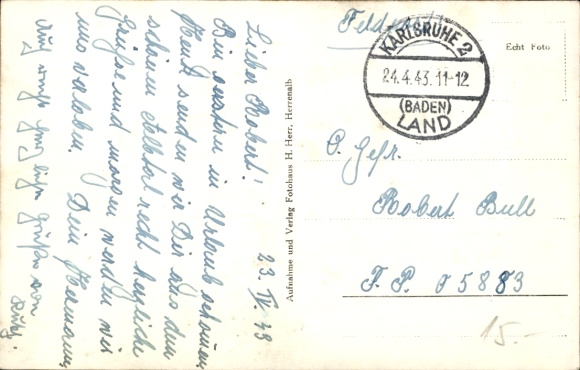 23. IV. 43
Lieber Robert!
Bin gestern in Urlaub gekommen
Heute senden wir Dir aus dem
schönen Albtal recht herzliche
Grüße und morgen werden wir
uns verloben. Dein Hermann
Auch noch herzliche Grüße von
Feldpost
KARLSRUHE 2
24.4.43.11-12
(BADEN)
LAND
Echt Foto
O. Gefr.
Robert Bull
F. P. 05883
15.-
Aufnahme und Verlag Fotohaus H. Herr, Herrenalb